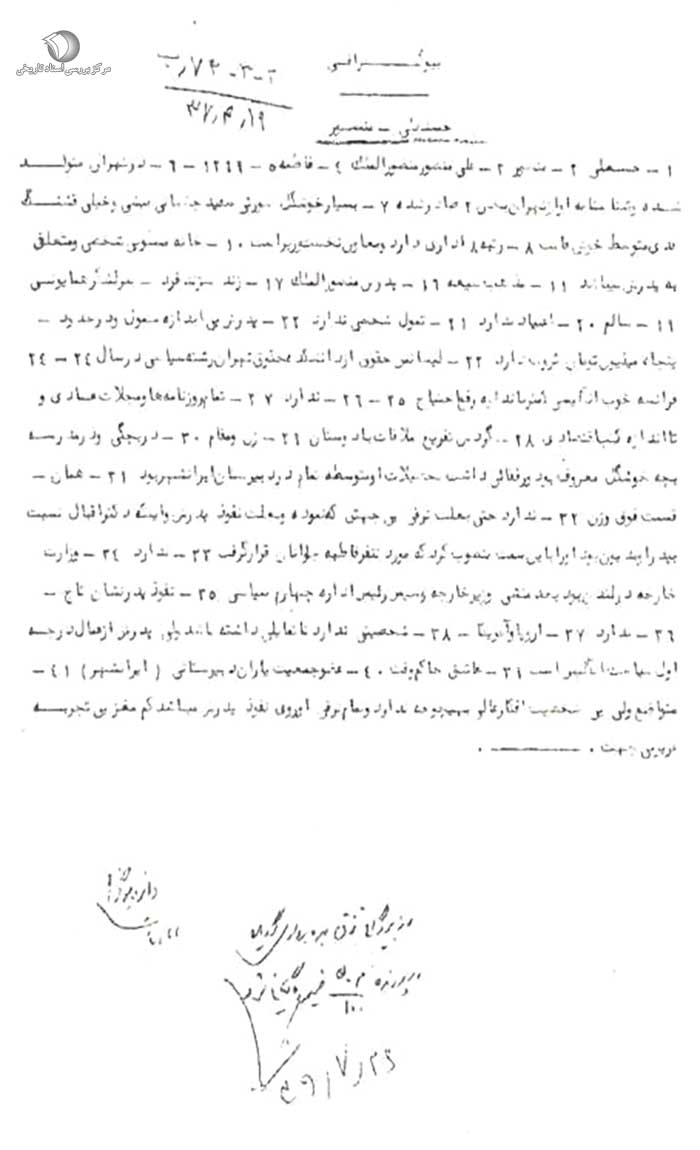 مرکز بررسی اسناد تاریخی
بیوگرافی
حسنعلی - منصور
۳۷٫۴٫۱۹
۱ - حسنعلی ۲ - منصور ۳ - علی منصور منصورالملک ۴ - فاطمه ۵ - ۱۲۹۹ - ۶ - در تهران متولد
شده و شناسنامه او از تهران بخش ۲ صادر شده ۷ - بسیار خوشگل صورتی سفید چشمانی میشی و خیلی قشنگ
قدی متوسط خوش قامت ۸ - رتبه ۸ اداری دارد و معاون نخست وزیر است ۱۰ - خانه مسکونی شخصی و متعلق
به پدرش میباشد ۱۱ - مذهب شیعه ۱۶ - پدرش منصورالملک ۱۷ - زند سرلشگر همایونی
۱۹ - سالم ۲۰ - اعتیاد ندارد ۲۱ - تمول شخصی ندارد ۲۲ - پدرش بی اندازه متمول و در حدود -
پنجاه میلیون تومان ثروت دارد ۲۳ - لیسانس حقوق از دانشکده حقوق تهران رشته سیاسی در سال ۲۴ - ۲۴
فرانسه خوب انگلیسی کمتر باندازه رفع احتیاج ۲۵ - ۲۶ - ندارد ۲۷ - تمام روزنامه‌ها و مجلات عادی و
تا اندازه ۲۸ - گردش تفریح ملاقات با دوستان ۲۹ - زن و مقام ۳۰ - در بچگی و در مدرسه
بچه خوشگل معروف بود و رفقائی داشت تحصیلات او متوسطه تمام در دبیرستان ایرانشهر بود ۳۱ - همان -
قسمت فوق وزن ۳۲ - ندارد حتی بعلت ترقی بی جهتی که نموده و بعلت نفوذ پدرش وابسته دکتر اقبال نسبت
باو را بدبین بود او را باین سمت منصوب کرد که مورد تنفر قاطبه جوانان قرار گرفت ۳۳ - ندارد ۳۴ - وزارت
خارجه در لندن بود بعد منشی وزیر خارجه و سپس رئیس اداره چهارم سیاسی ۳۵ - نفوذ پدرشان تاج -
۳۶ - ندارد ۳۷ - اروپا و آمریکا - ۳۸ - شخصیتی ندارد تا تمایلی داشته باشد ولی پدرش از عمال درجه
اول سیاست انگلیس است ۳۹ - عاشق حاکم وقت ۴۰ - عضو جمعیت یاران دبیرستانی ( ایرانشهر ) ۴۱ -
متواضع ولی بی شخصیت افکار عالی بهیچوجه ندارد و تمام ترقی او روی نفوذ پدرش میباشد کم مغز بی تجربه
در هر جهت .